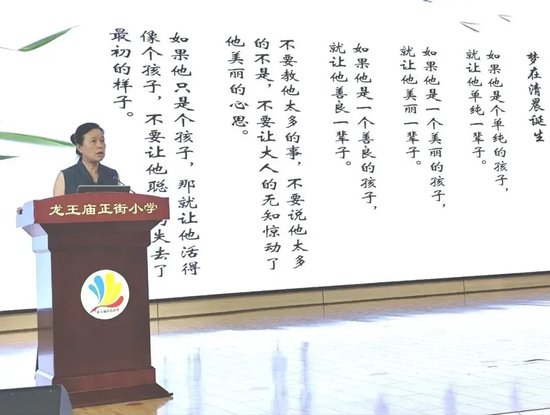 梦在清晨诞生
如果他是个单纯的孩子，
就让他单纯一辈子。
如果他是一个美丽的孩子，
就让他美丽一辈子。
如果他是一个善良的孩子，
就让他善良一辈子。
不要教他太多的事，不要说他太多
的不是，不要让大人的无知惊动了
他美丽的心思。
如果他只是个孩子，那就让他活得
像个孩子，不要让他聪的失去了
最初的样子。
龙王庙正街小学